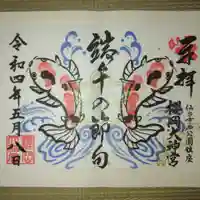 奉拝
仙台西公園鎮座
櫻岡大神宮
端午の節句
令和四年五月八日